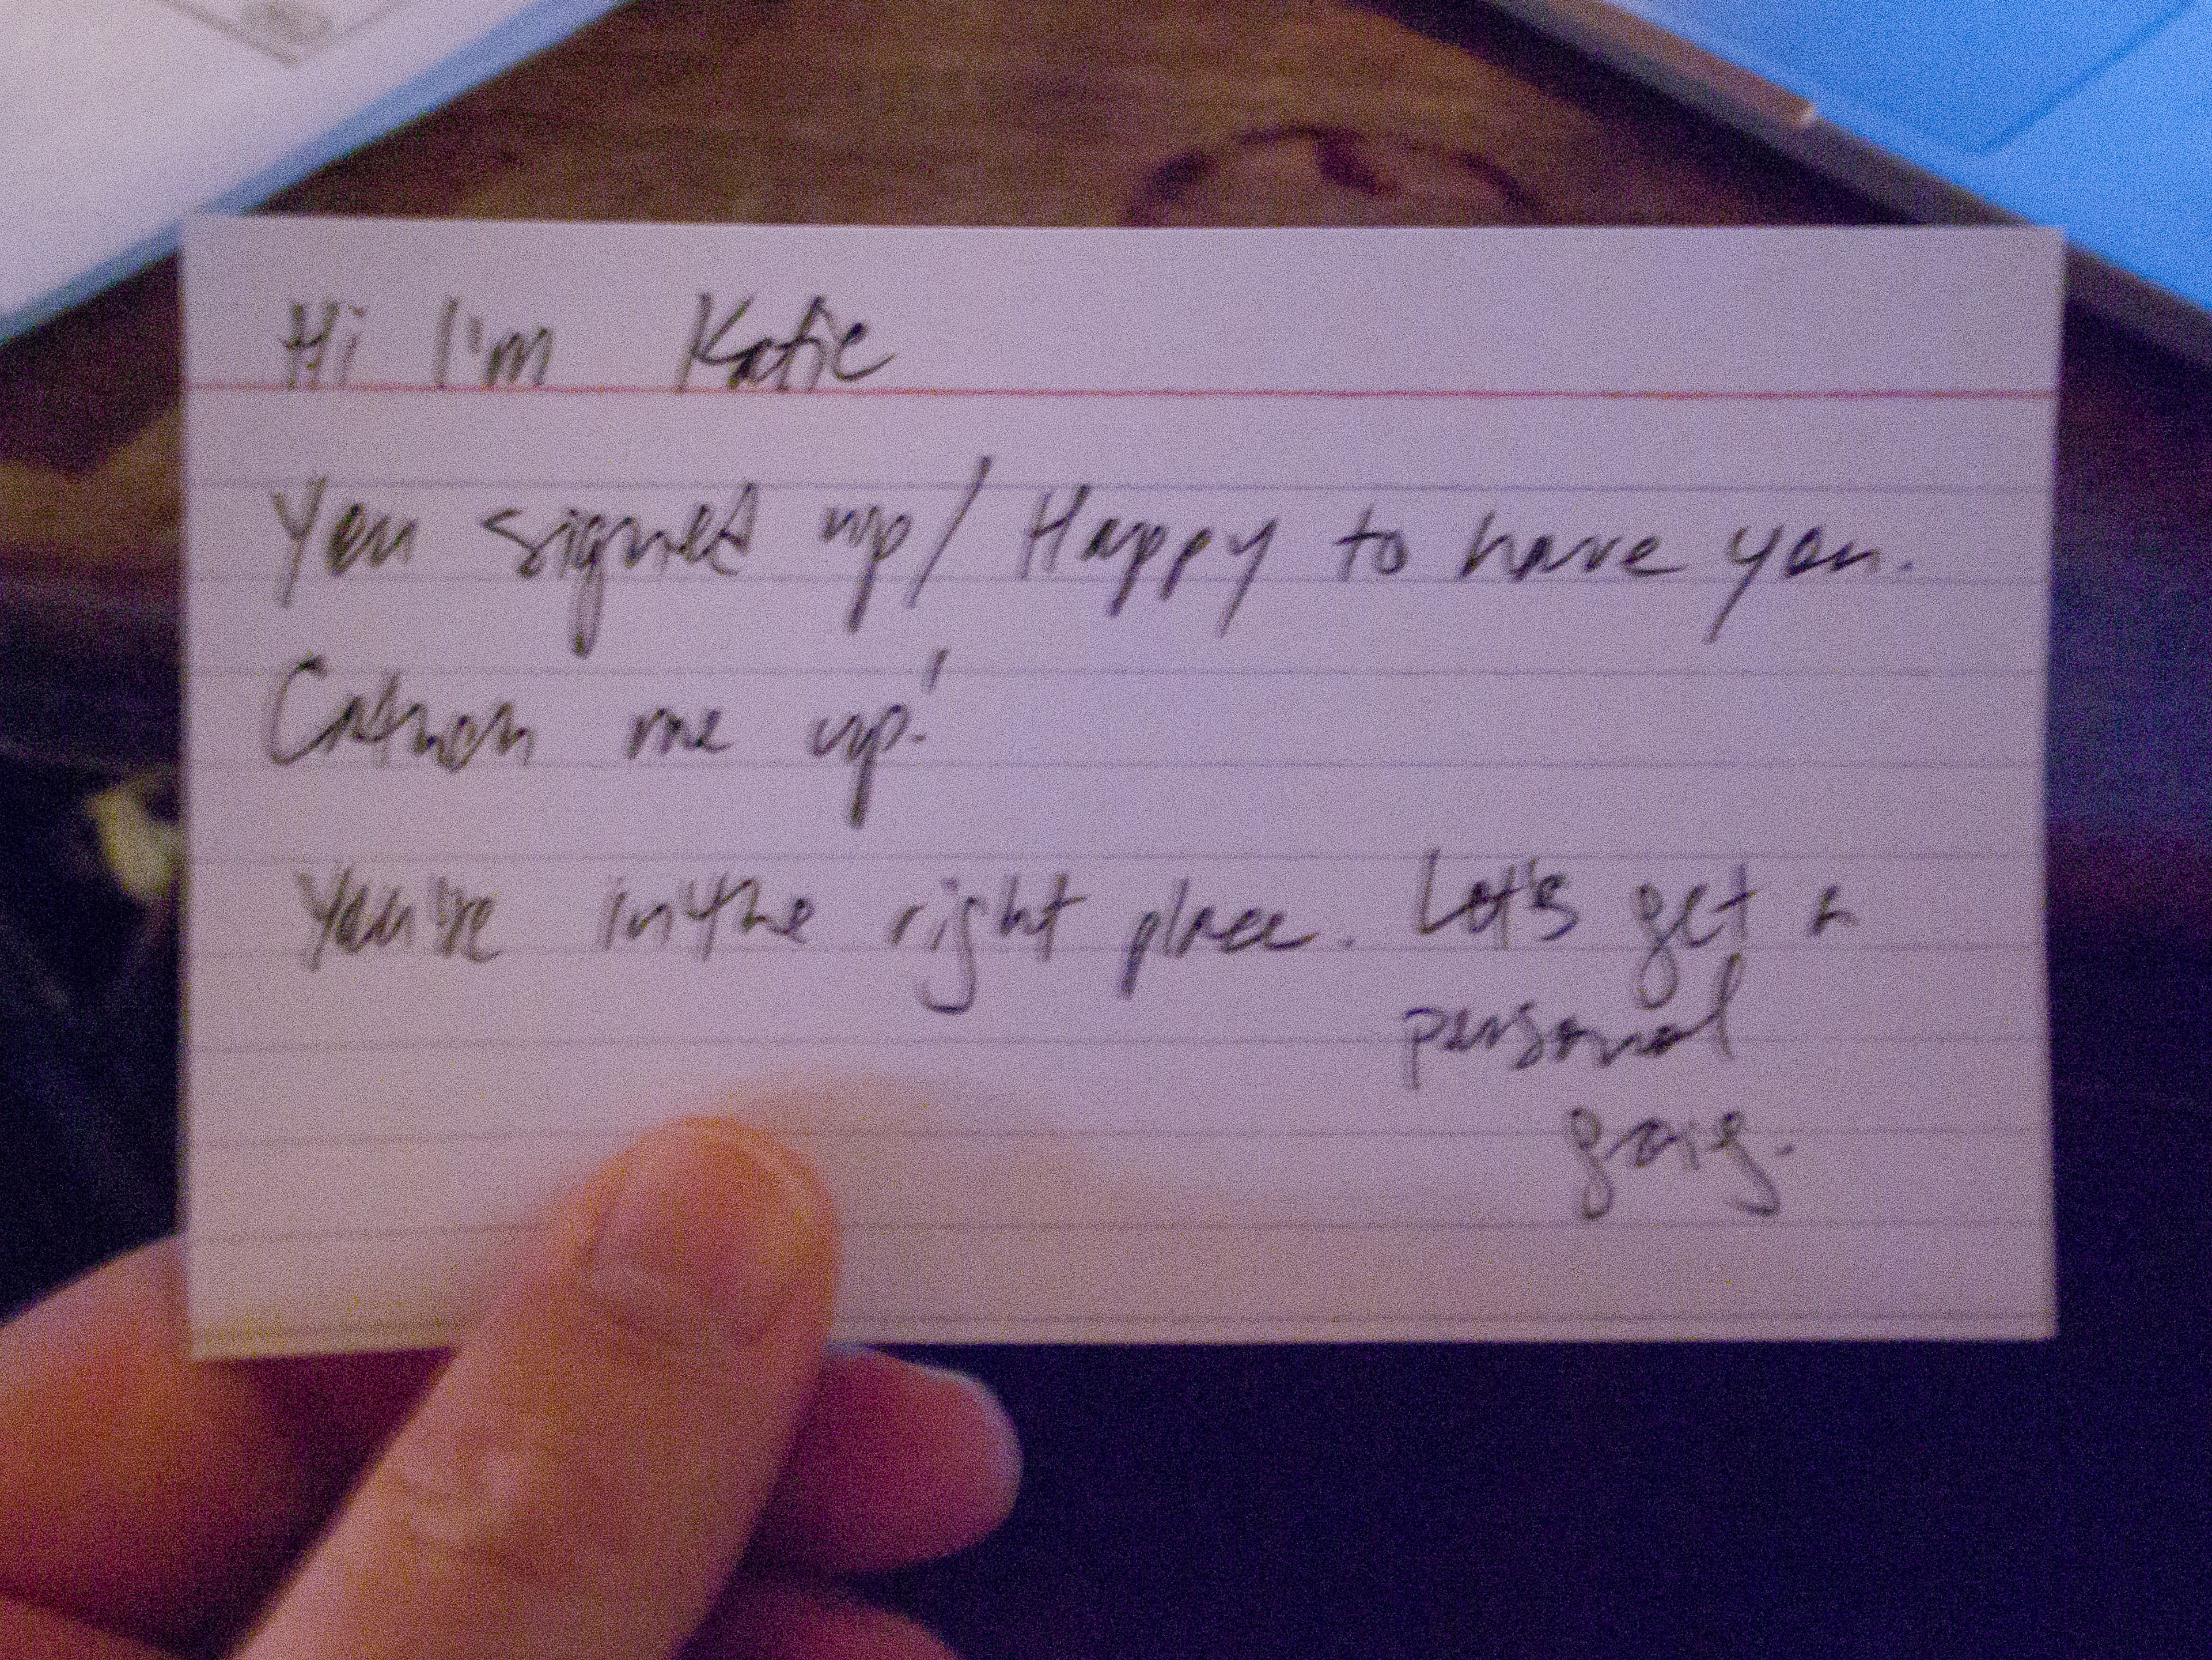 Hi I'm Katie
You signed up/ Happy to have you.
Catch me up!
You're in the right place. Let's get a
personal
going.